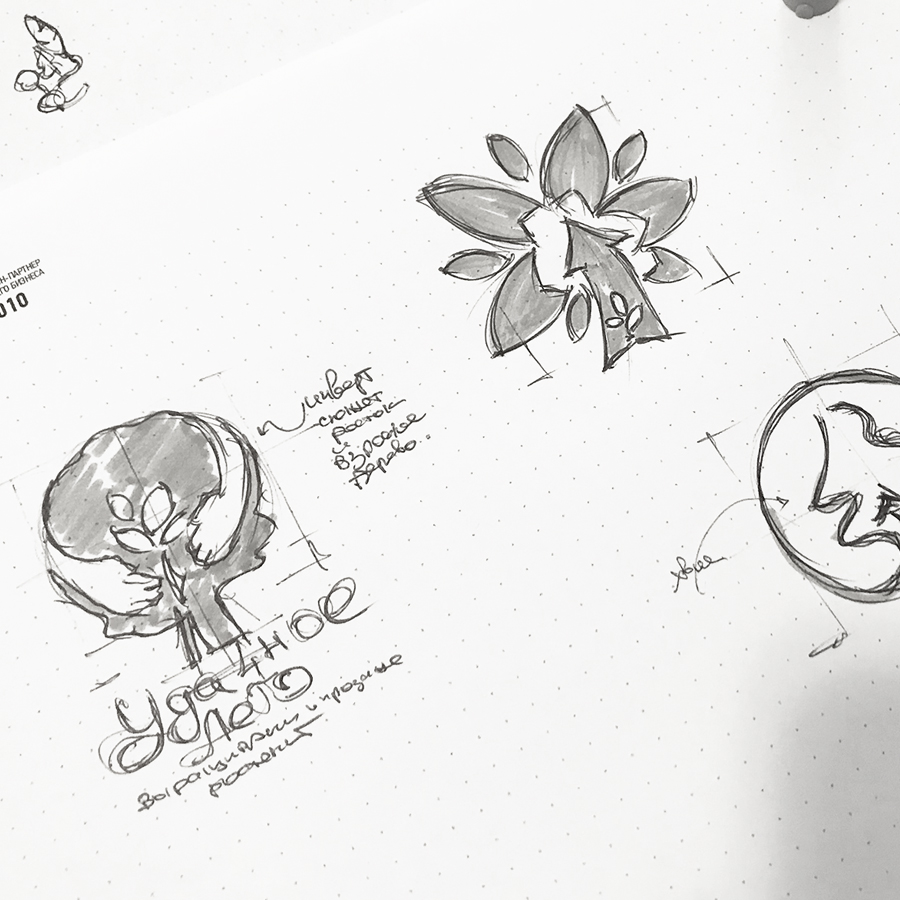 Н-ПАРТНЕР
ГО БИЗНЕСА
010
инверт
сюжет
росток
и
взрослое
дерево..
Удачное
лето
выращивание и продание
растений